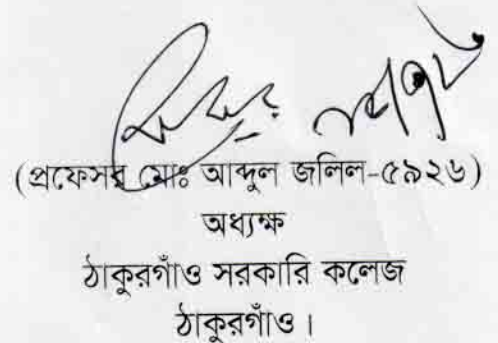 (প্রফেসর মোঃ আব্দুল জলিল-৫৯২৬)
অধ্যক্ষ
ঠাকুরগাঁও সরকারি কলেজ
ঠাকুরগাঁও।